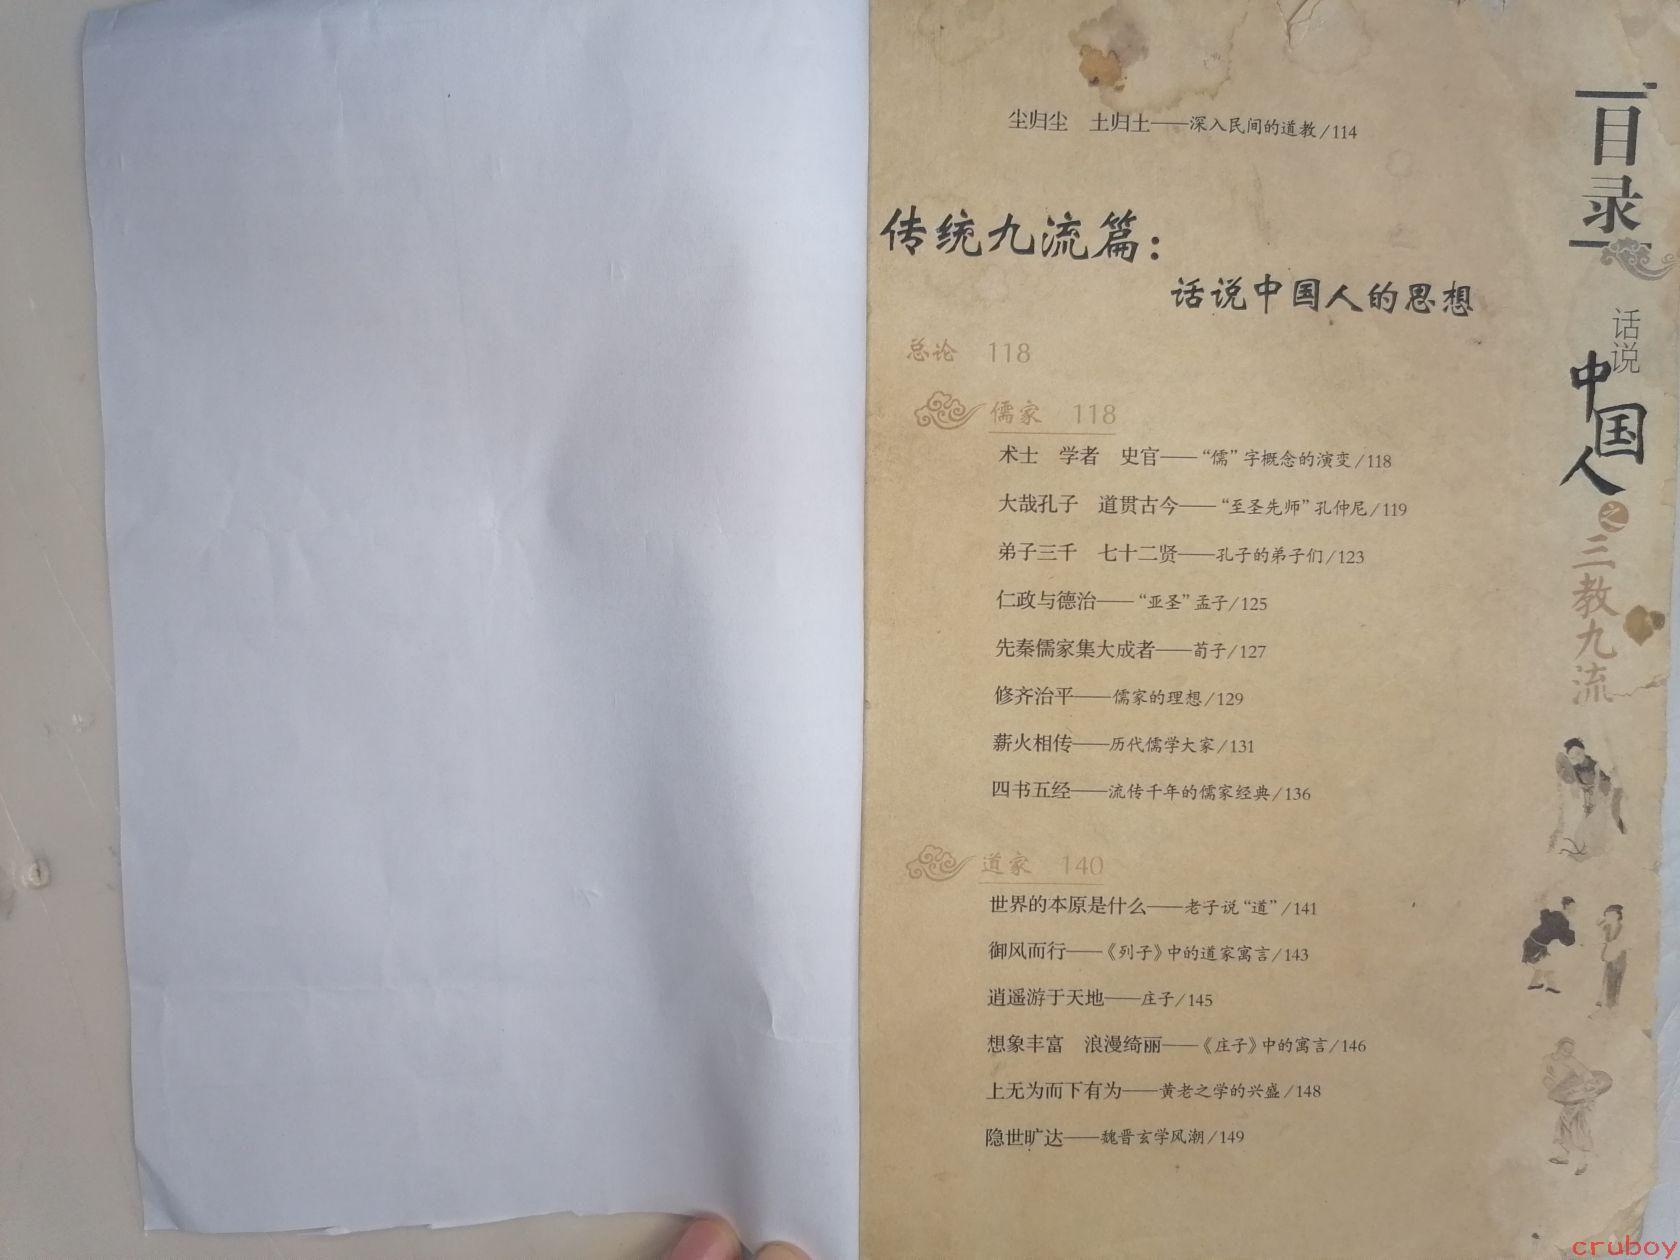 尘归尘　土归土——深入民间的道教/114
传统九流篇：
话说中国人的思想
总论　118
儒家　118
术士　学者　史官——“儒”字概念的演变/118
大哉孔子　道贯古今——“至圣先师”孔仲尼/119
弟子三千　七十二贤——孔子的弟子们/123
仁政与德治——“亚圣”孟子/125
先秦儒家集大成者——荀子/127
修齐治平——儒家的理想/129
薪火相传——历代儒学大家/131
四书五经——流传千年的儒家经典/136
道家　140
世界的本原是什么——老子说“道”/141
御风而行——《列子》中的道家寓言/143
逍遥游于天地——庄子/145
想象丰富　浪漫绮丽——《庄子》中的寓言/146
上无为而下有为——黄老之学的兴盛/148
隐世旷达——魏晋玄学风潮/149
目录
话说
中国人
之
三教九流
cruboy